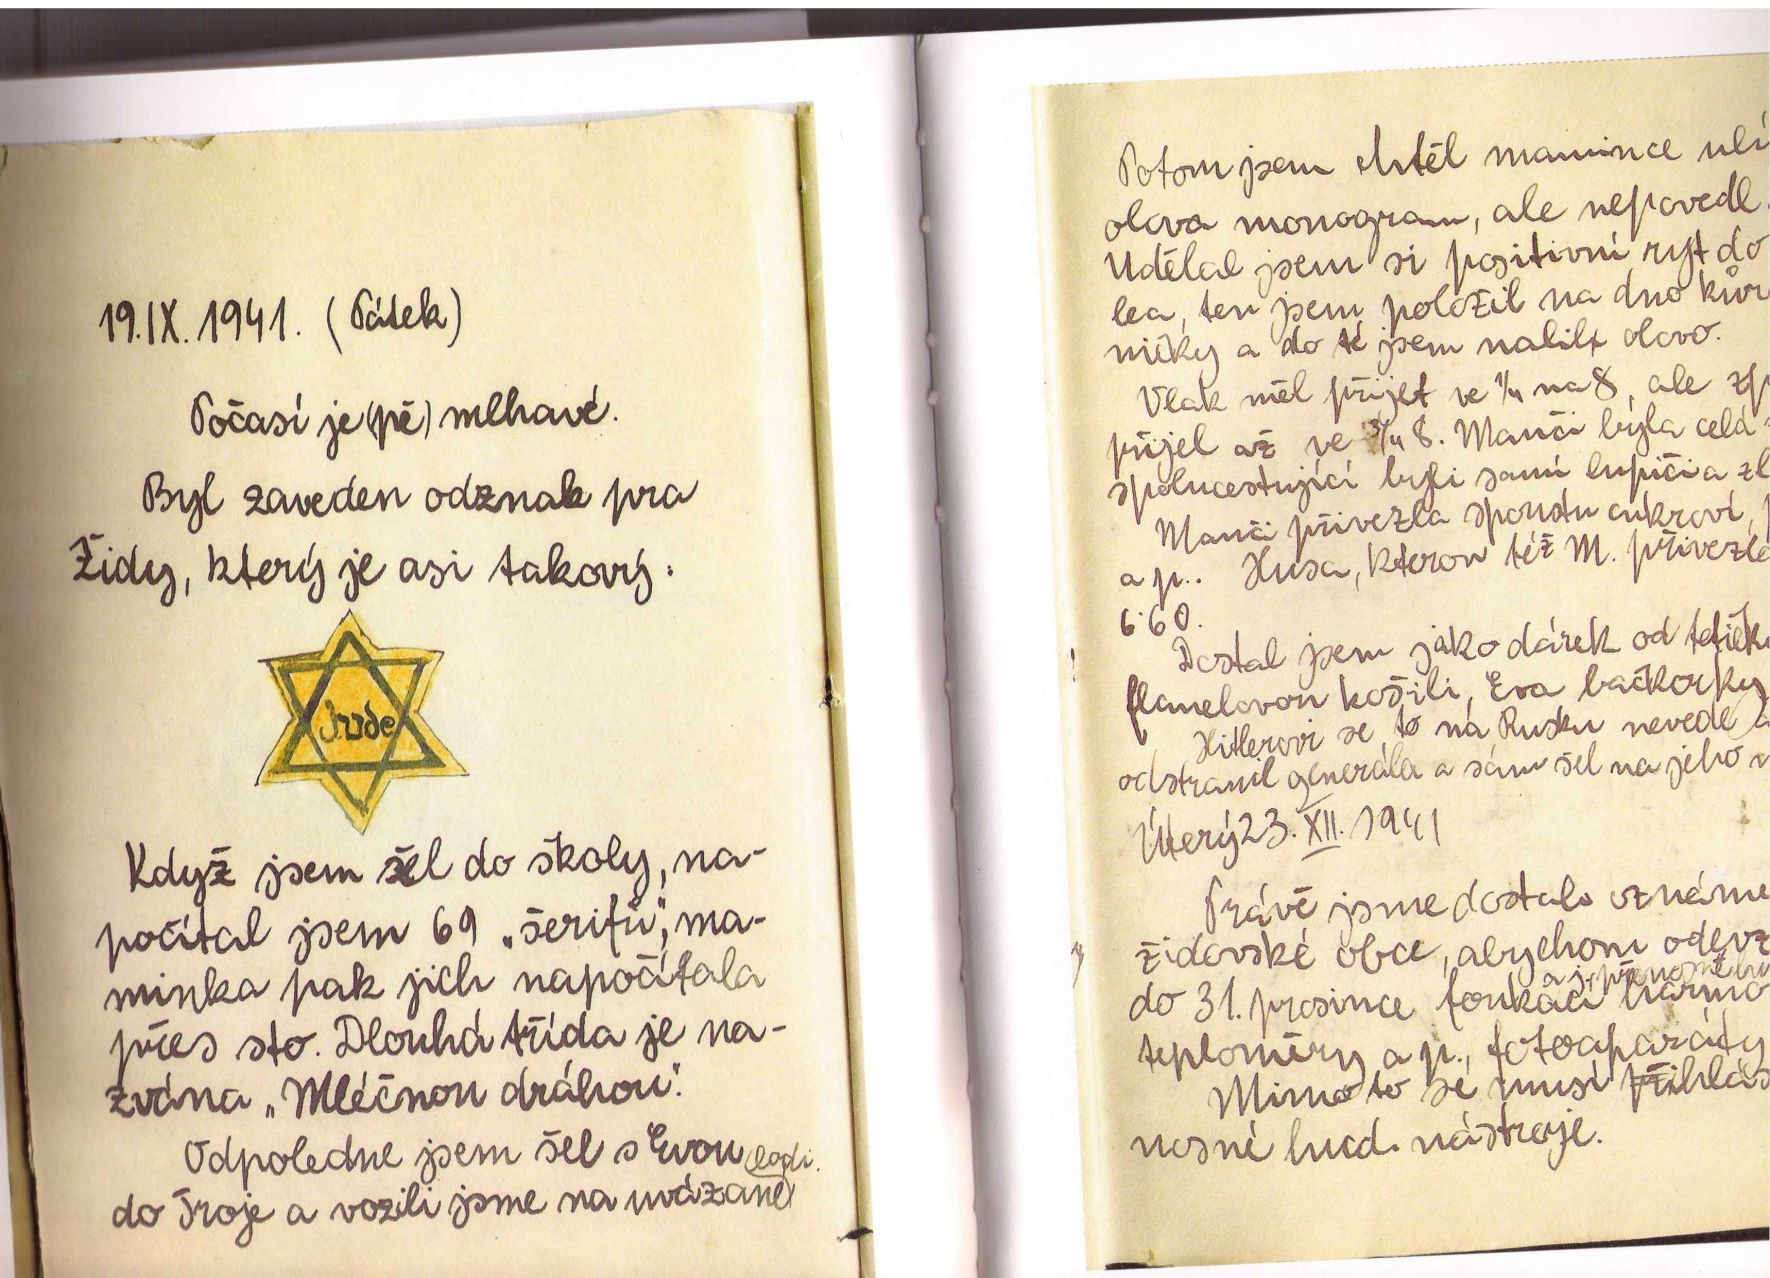 19.IX. 1941. (Pátek)
Počasí je (pě) mlhavé.
Byl zaveden odznak pra
Židy, který je asi takový:
Jude
Když jsem šel do školy, na-
počítal jsem 69 „šerifů“, ma-
minka pak jich napočítala
přes sto. Dlouhá třída je na-
zvána „Mléčnou dráhou“.
Odpoledne jsem šel s Evou
do Troje a vozili jsme na uvázané
lodi.
Potom jsem chtěl mamince ulí
olova monogram, ale nepovedl
Udělal jsem si positivní ryt do
lea, ten jsem položil na dno kůr
ničky a do té jsem nalil olovo.
Vlak měl přijet ve 1/4 na 8, ale zp
přijel až ve 3/4 8. Manči byla celá
spolucestující byli samí lupiči a zl
Manči přivezla spoustu cukroví,
a p.. Husa, kterou též M. přivezla
6·60.
Dostal jsem jako dárek od tetičk
flanelovou košili, Eva bačkorky
Hitlerovi se to na Rusku nevede a
odstranil generála a sám šel na jeho
Úterý 23. XII. 1941
Právě jsme dostali oznáme
židovské obce, abychom odevz
do 31. prosince foukací harmo
a j. přenosné hu
teploměry a p., fotoaparáty
Mimo to se musí přihlás
nosné hud. nástroje.